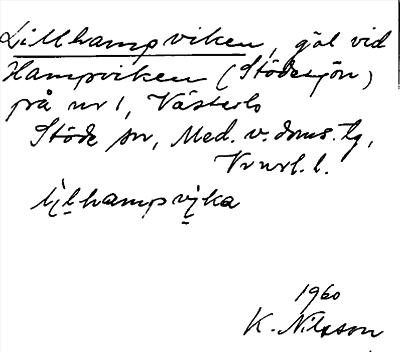 Lillhampviken, göl vid
Hampviken (Stödesjön)
på nr 1, Västerlo
Stöde sn, Med. v. doms. tg,
Vnrl. l.
lil̥hampvika
1960
K. Nilsson